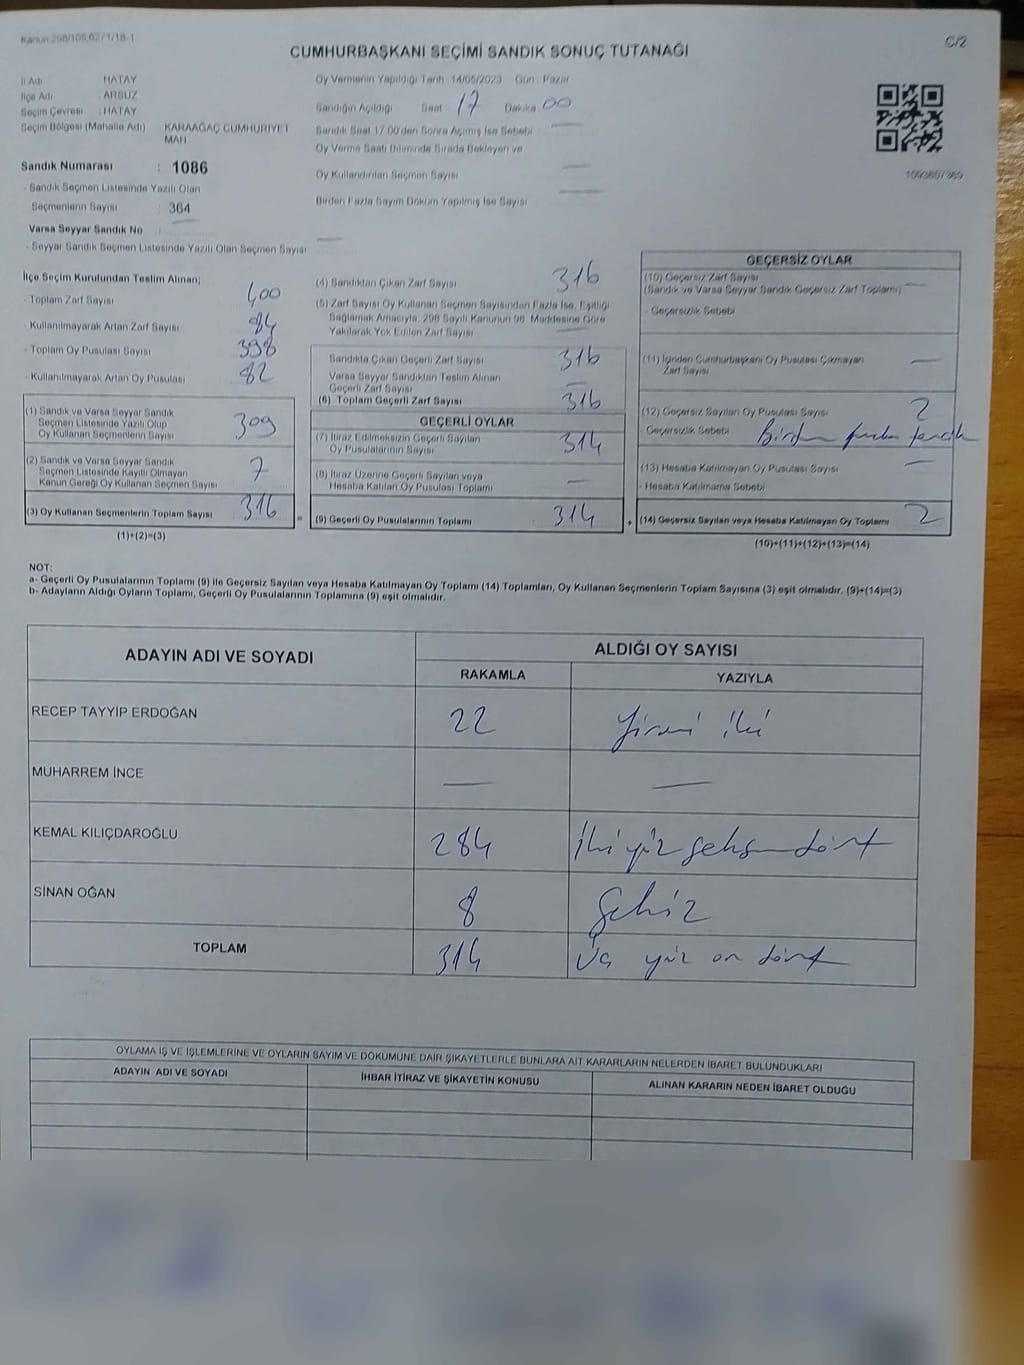 Kanun 298/105,6271/18-1
C/2
CUMHURBAŞKANI SEÇİMİ SANDIK SONUÇ TUTANAĞI
İl Adı HATAY
İlçe Adı ARSUZ
Seçim Çevresi : HATAY
Seçim Bölgesi (Mahalle Adı) KARAAĞAÇ CUMHURİYET
MAH
Sandık Numarası : 1086
- Sandık Seçmen Listesinde Yazılı Olan
Seçmenlerin Sayısı : 364
Varsa Seyyar Sandık No
- Seyyar Sandık Seçmen Listesinde Yazılı Olan Seçmen Sayısı
Oy Vermenin Yapıldığı Tarih : 14/05/2023 Gün : Pazar
Sandığın Açıldığı Saat : 17 Dakika 00
Sandık Saat 17.00'den Sonra Açımış İse Sebebi
Oy Verme Saati Bitiminde Sırada Bekleyen ve
Oy Kullandırılan Seçmen Sayısı
Birden Fazla Sayım Döküm Yapılmış İse Sayısı
1093867369
İlçe Seçim Kurulundan Teslim Alınan;
- Toplam Zarf Sayısı 400
- Kullanılmayarak Artan Zarf Sayısı 84
- Toplam Oy Pusulası Sayısı 398
- Kullanılmayarak Artan Oy Pusulası 82
(1) Sandık ve Varsa Seyyar Sandık
Seçmen Listesinde Yazılı Olup
Oy Kullanan Seçmenlerin Sayısı 309
(2) Sandık ve Varsa Seyyar Sandık
Seçmen Listesinde Kayıtlı Olmayan
Kanun Gereği Oy Kullanan Seçmen Sayısı 7
(3) Oy Kullanan Seçmenlerin Toplam Sayısı 316
(1)+(2)=(3)
(4) Sandıktan Çıkan Zarf Sayısı 316
(5) Zarf Sayısı Oy Kullanan Seçmen Sayısından Fazla İse, Eşitliği
Sağlamak Amacıyla, 298 Sayılı Kanunun 98. Maddesine Göre
Yakılarak Yok Edilen Zarf Sayısı
Sandıkta Çıkan Geçerli Zarf Sayısı 316
Varsa Seyyar Sandıktan Teslim Alınan
Geçerli Zarf Sayısı
(6) Toplam Geçerli Zarf Sayısı 316
GEÇERLİ OYLAR
(7) İtiraz Edilmeksizin Geçerli Sayılan
Oy Pusulalarının Sayısı 314
(8) İtiraz Üzerine Geçerli Sayılan veya
Hesaba Katılan Oy Pusulası Toplamı
= (9) Geçerli Oy Pusulalarının Toplamı 314 +
GEÇERSİZ OYLAR
(10) Geçersiz Zarf Sayısı
(Sandık ve Varsa Seyyar Sandık Geçersiz Zarf Toplamı)
- Geçersizlik Sebebi
(11) İçinden Cumhurbaşkanı Oy Pusulası Çıkmayan
Zarf Sayısı
(12) Geçersiz Sayılan Oy Pusulası Sayısı 2
- Geçersizlik Sebebi Birden fazla tercih
(13) Hesaba Katılmayan Oy Pusulası Sayısı
- Hesaba Katılmama Sebebi
(14) Geçersiz Sayılan veya Hesaba Katılmayan Oy Toplamı 2
(10)+(11)+(12)+(13)=(14)
NOT:
a- Geçerli Oy Pusulalarının Toplamı (9) ile Geçersiz Sayılan veya Hesaba Katılmayan Oy Toplamı (14) Toplamları, Oy Kullanan Seçmenlerin Toplam Sayısına (3) eşit olmalıdır. (9)+(14)=(3)
b- Adayların Aldığı Oyların Toplamı, Geçerli Oy Pusulalarının Toplamına (9) eşit olmalıdır.
ADAYIN ADI VE SOYADI
ALDIĞI OY SAYISI
RAKAMLA YAZIYLA
RECEP TAYYİP ERDOĞAN 22 Yirmi iki
MUHARREM İNCE
KEMAL KILIÇDAROĞLU 284 İki yüz seksen dört
SİNAN OĞAN 8 Sekiz
TOPLAM 314 Üç yüz on dört
OYLAMA İŞ VE İŞLEMLERİNE VE OYLARIN SAYIM VE DÖKÜMÜNE DAİR ŞİKAYETLERLE BUNLARA AİT KARARLARIN NELERDEN İBARET BULUNDUKLARI
ADAYIN ADI VE SOYADI İHBAR İTİRAZ VE ŞİKAYETİN KONUSU ALINAN KARARIN NEDEN İBARET OLDUĞU